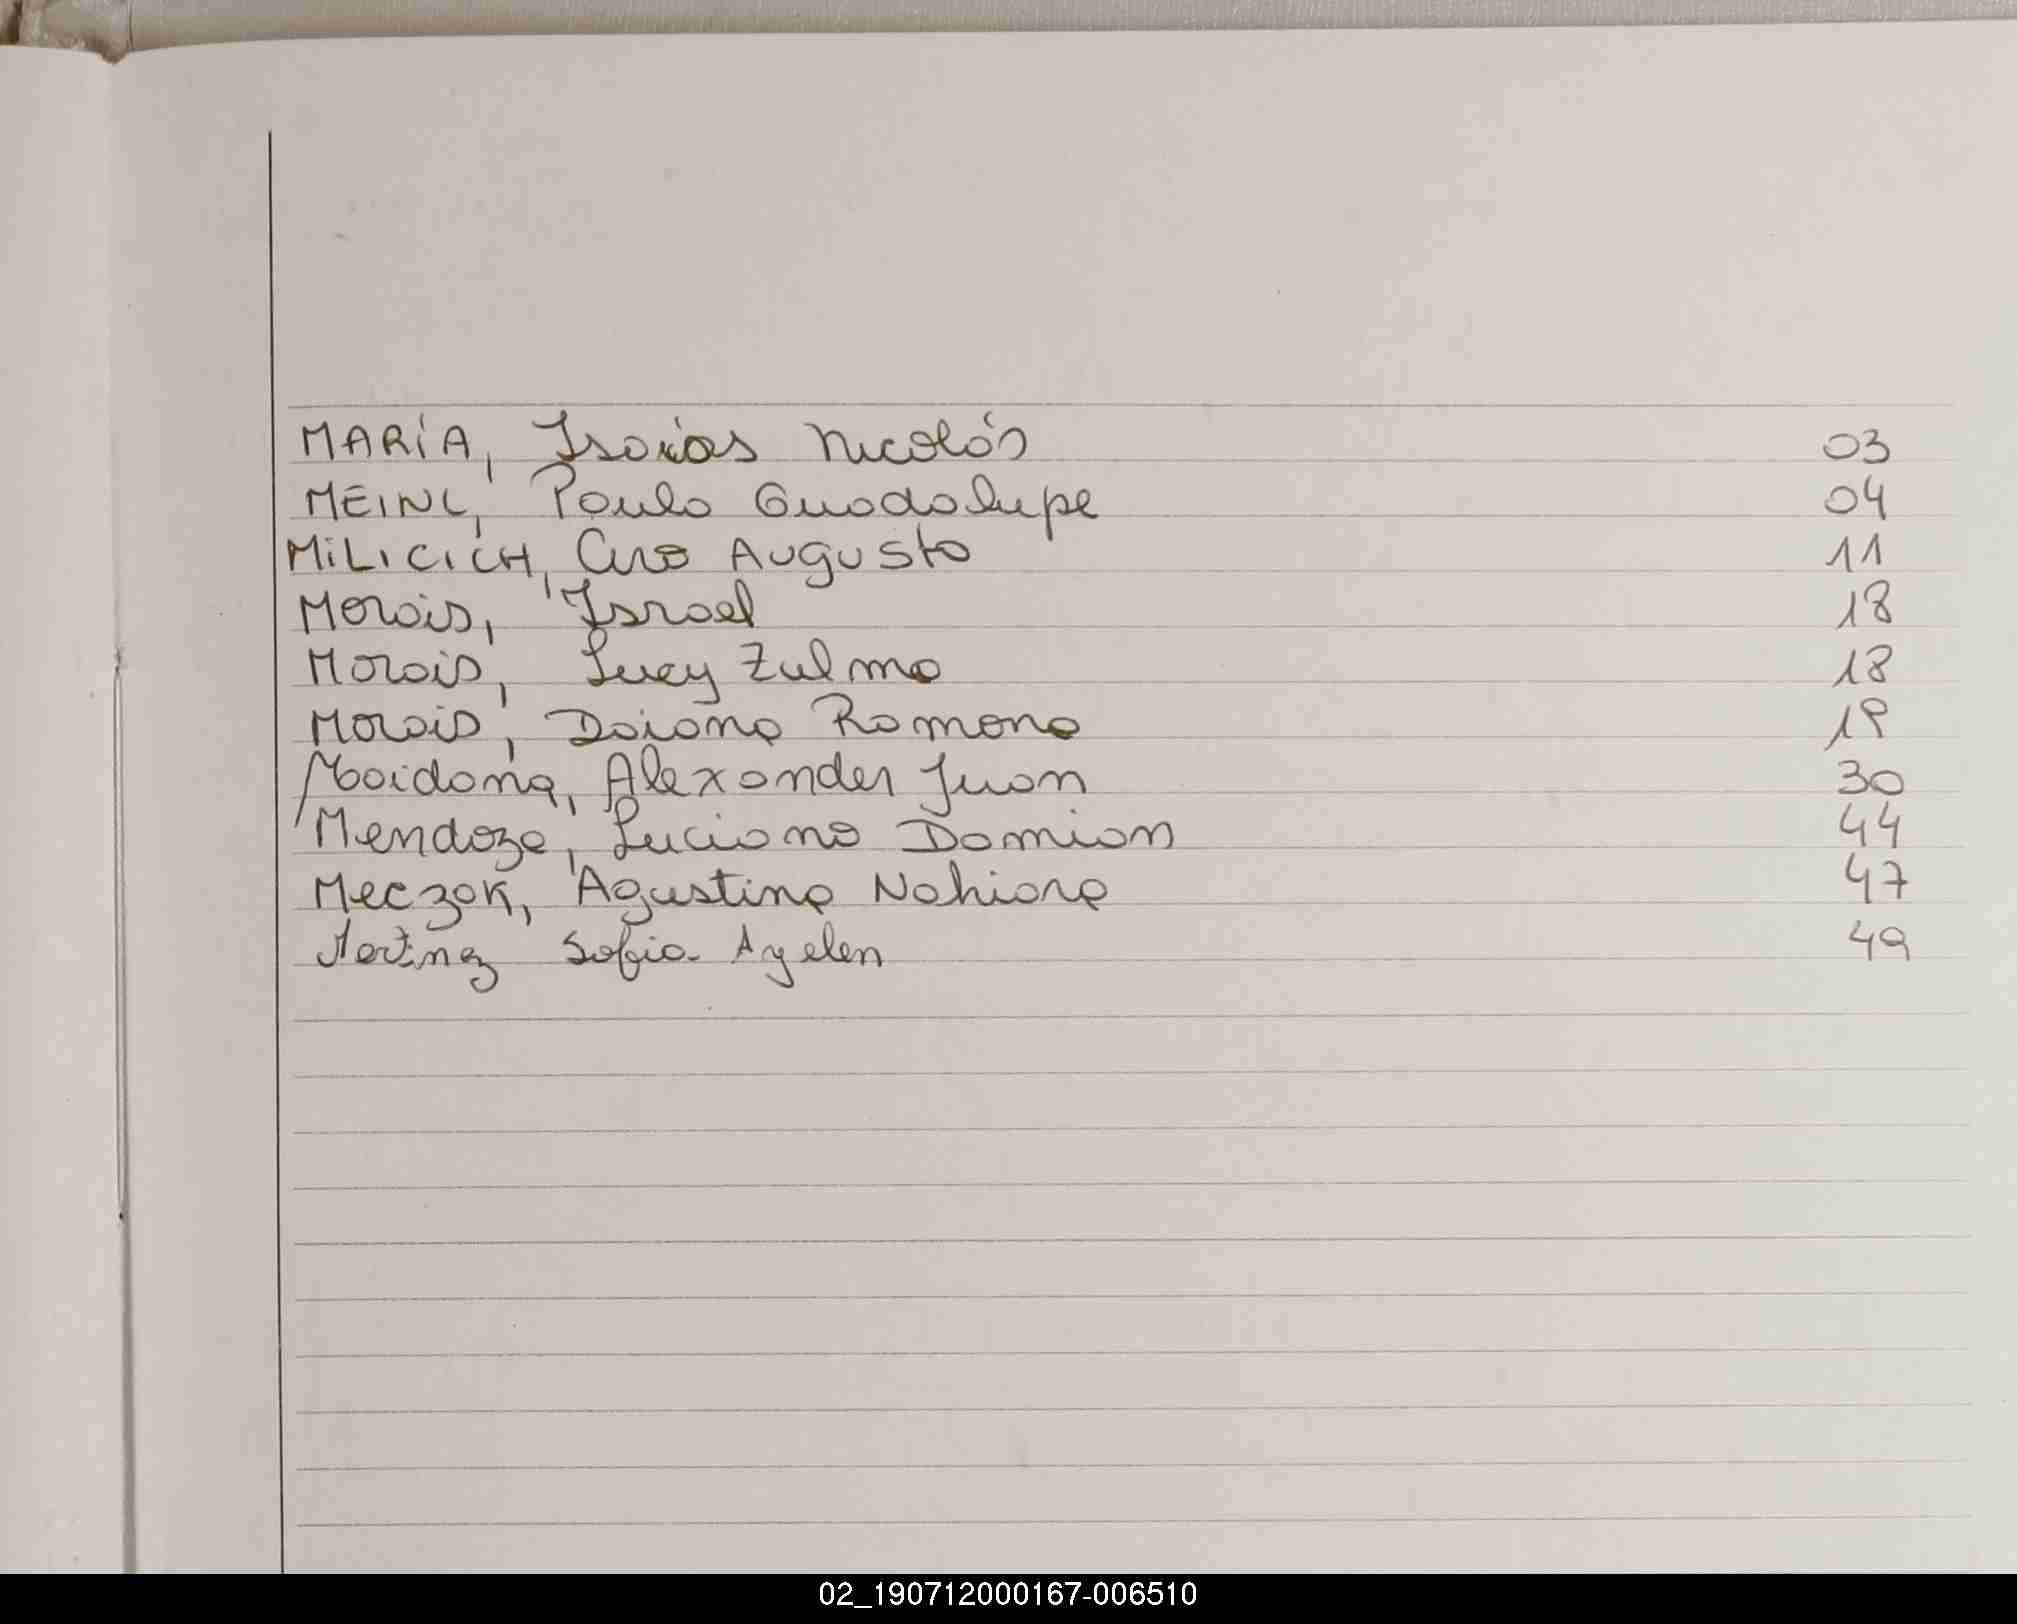 MARÍA, Isaías Nicolás 03
MEINL, Paula Guadalupe 04
MiLICICH, Ciro Augusto 11
Morais, Israel 18
Morais, Lucy Zulma 18
Morais, Daiana Ramona 19
Maidana, Alexander Juan 30
Mendoza, Luciano Damian 44
Meczok, Agustina Nahiara 47
Sofia Ayelen 49
02_190712000167-006510